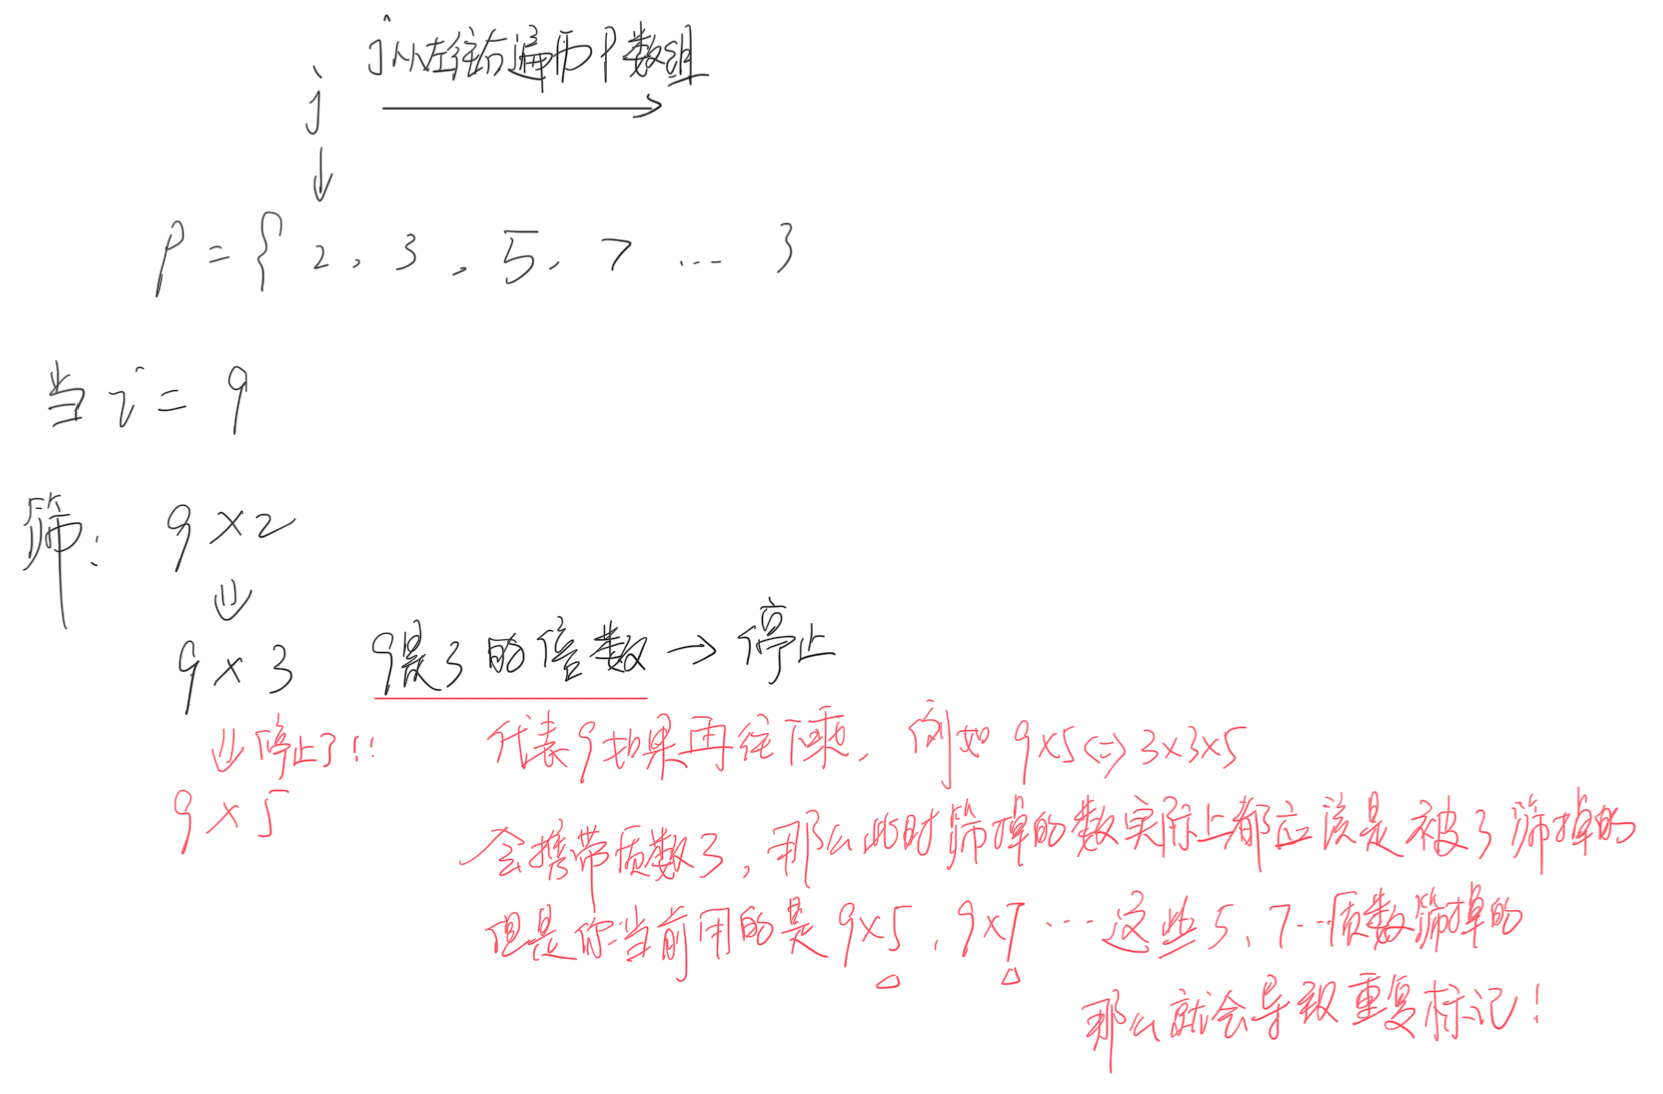 j从左往右遍历P数组
j
↓
P = { 2, 3, 5, 7 ... }
当 i = 9
筛: 9 × 2
⇓
9 × 3 9是3的倍数 → 停止
⇓停止了!! 代表9如果再往下乘, 例如 9×5 <=> 3×3×5
9 × 5
会携带质数3, 那么此时筛掉的数实际上都应该是被3筛掉的
但是你当前用的是 9×5, 9×7 ... 这些5、7...质数筛掉的
那么就会导致重复标记!